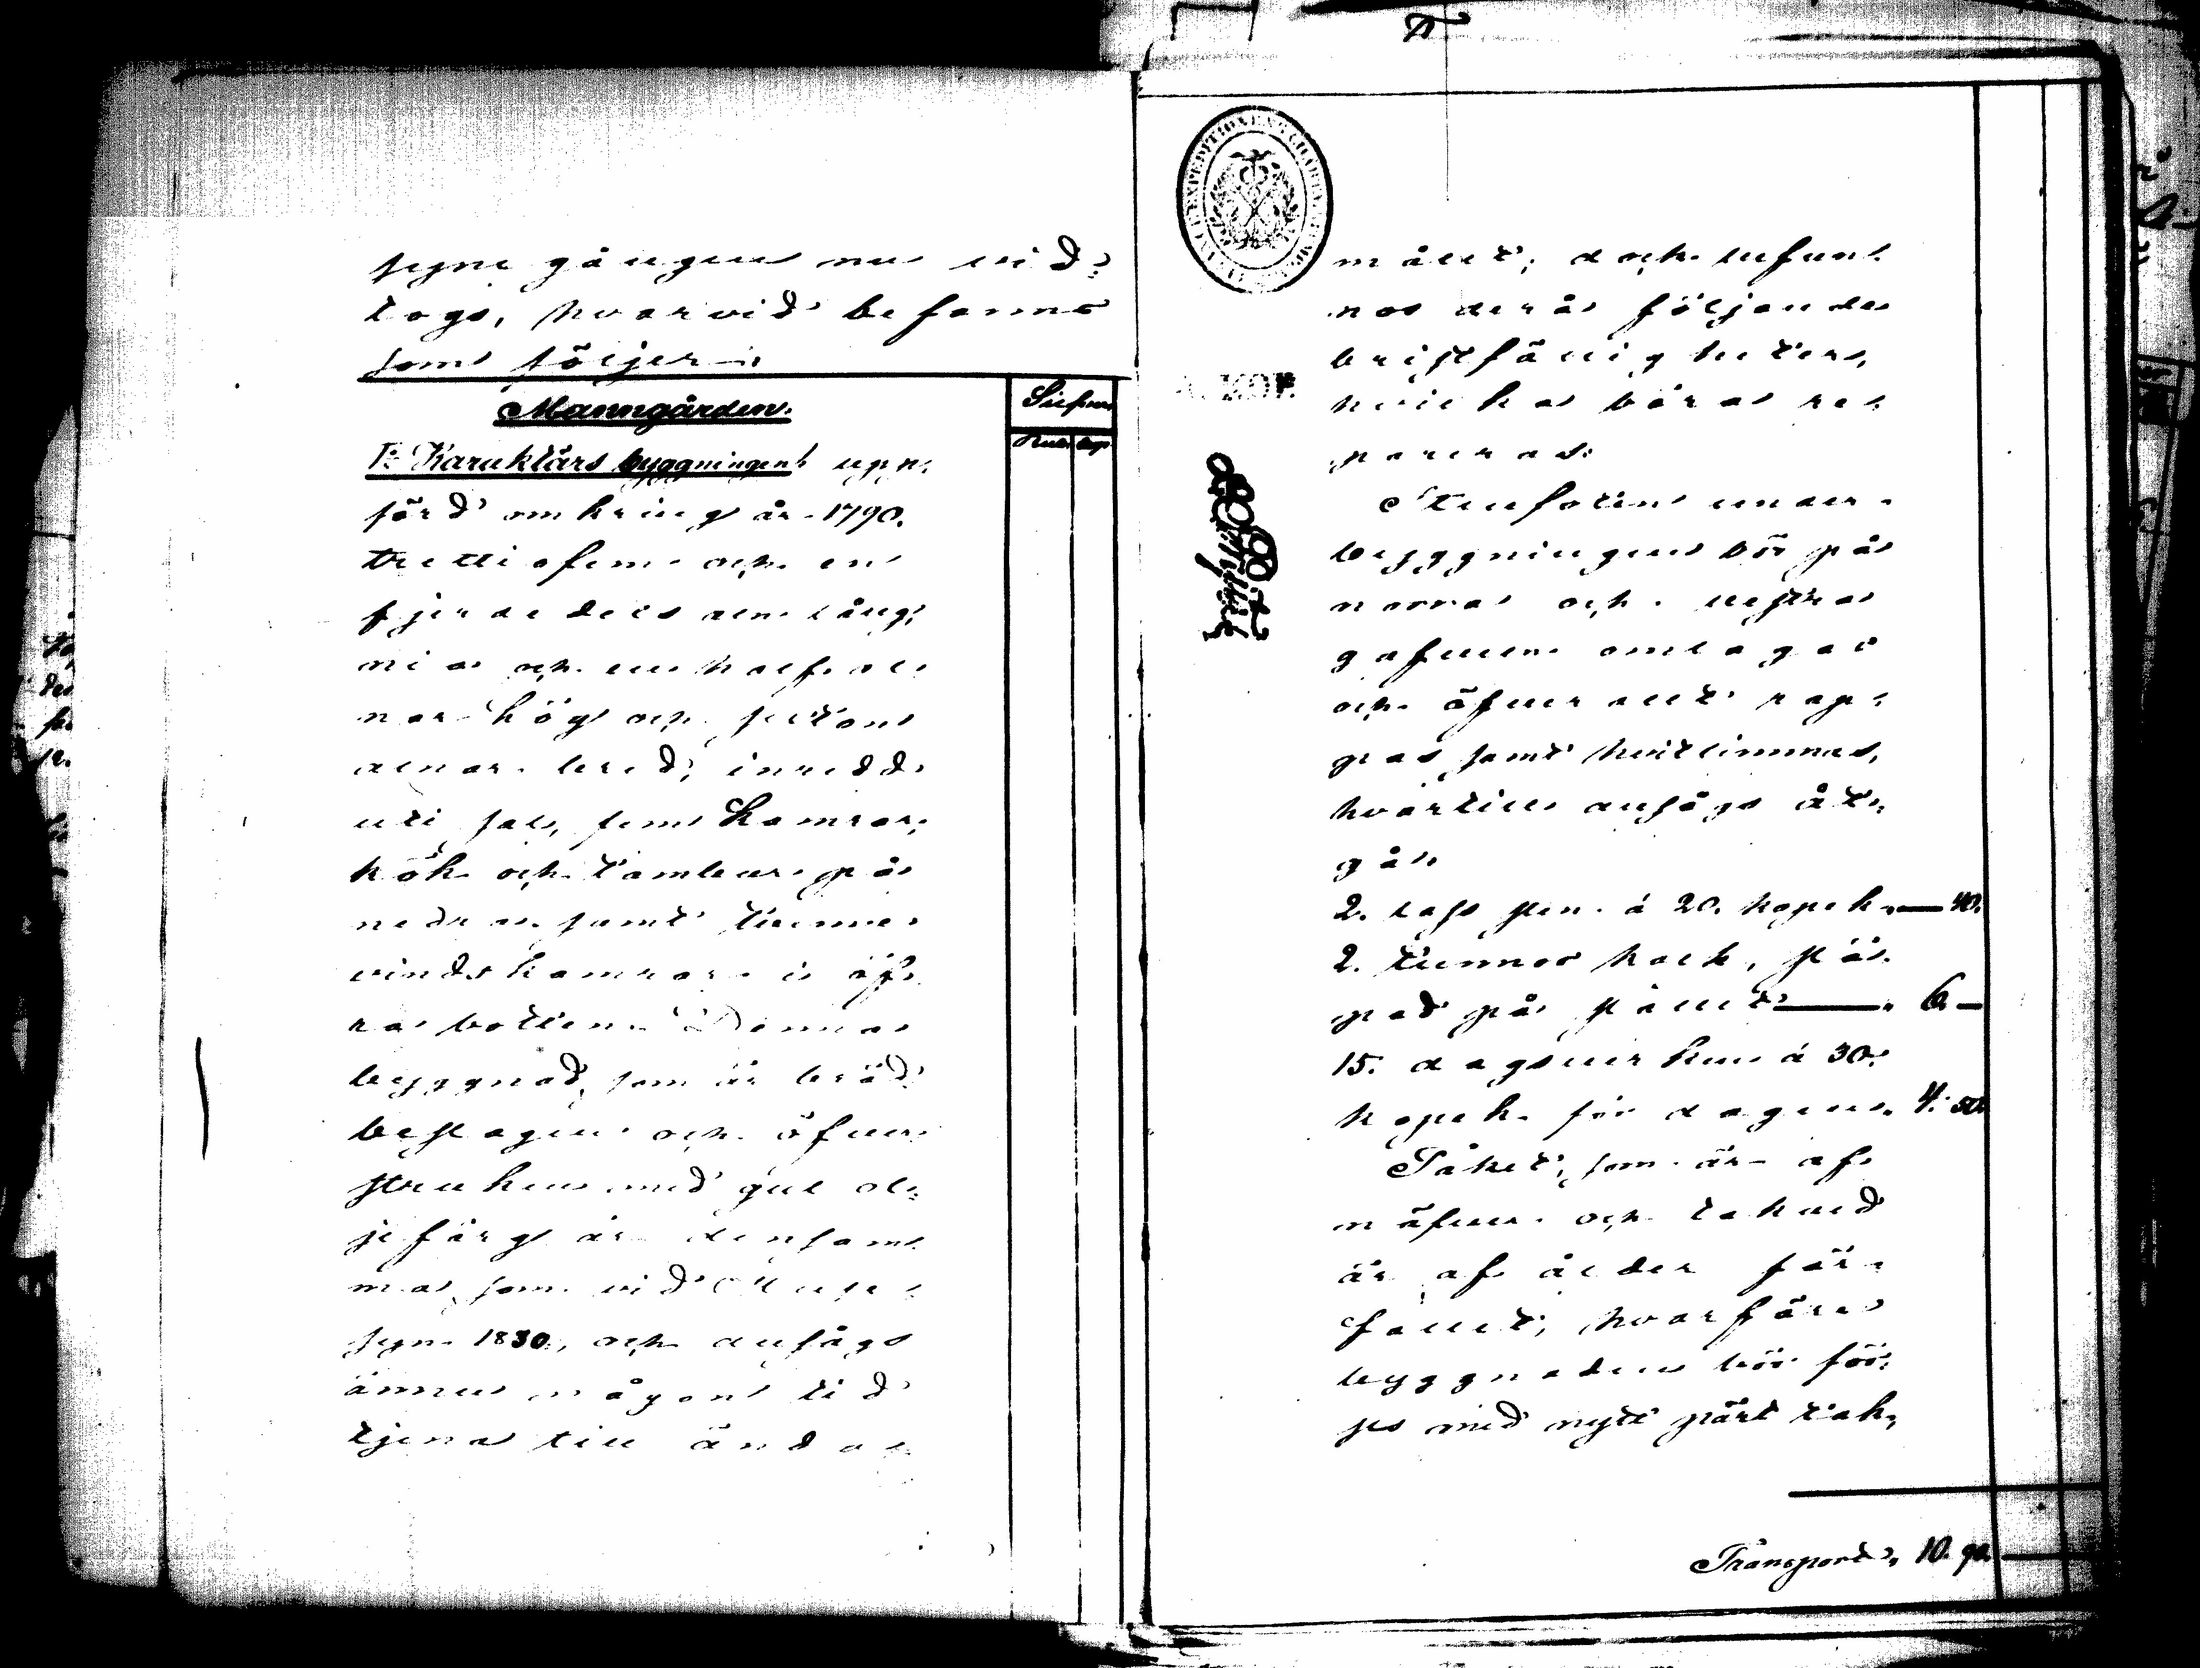 syne gången nu vid=
togs, hvarvid befanns
som följer
Manngården.
Silfver
Rub. kop.
1:o Karaktärs byggningen upp=
förd omkring år 1790.
trettiofem och en
fjerdedels aln lång,
nio och en half al=
nar hög och sexton
alnar bred, inredd
uti sal, fem kamrar,
kök och tambur på
nedra samt tvenne
vindskamrar i öf=
ra botten. Denna
byggnad, som är bräd=
beslagen och öfver=
struken med gul ol=
jefärg är densam=
ma som vid Huse=
syn 1830, och ansågs
ännu någon tid
tjena till ända=
målet; dock befun=
nos derå följande
bristfälligheter,
hvilka böra re=
pareras:
Stenfoten under
byggningen bör på
norra och vestra
gafveln omlagas
och öfver allt rap=
pas samt hvitlimmas,
hvartill ansågs åt=
gå
2. lass sten á 20. kopek. — 40.
2. tunnor kalk, slä=
pad på stället — 6 —
15. dagsverken á 30.
kopek för dagen. 4. 50.
Taket, som är af
näfver och takved
är af ålder för=
fallet, hvarföre
byggnaden bör för=
ses med nytt pärt tak,
Transport, 10. 90.